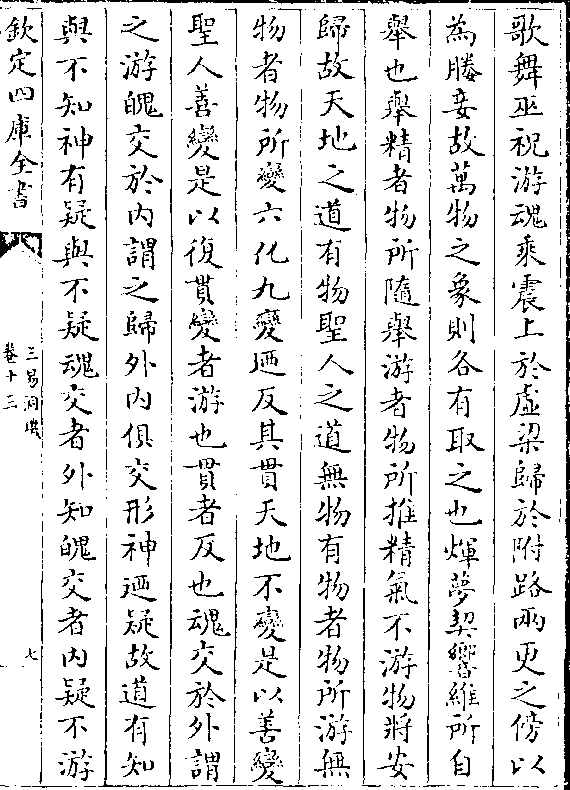 歌舞巫祝游魂乘震上於虛梁歸於附路兩更之傍以
為媵妾故萬物之象則各有取之也煇夢契響維所自
舉也舉精者物所隨舉游者物所推精氣不游物將安
歸故天地之道有物聖人之道無物有物者物所游無
物者物所變六化九變迺反其貫天地不變是以善變
聖人善變是以復貫變者游也貫者反也魂交於外謂
之游魄交於内謂之歸外内俱交形神迺疑故道有知
與不知神有疑與不疑魂交者外知魄交者内疑不游
欽定四庫全書
三易洞璣
卷十三
七